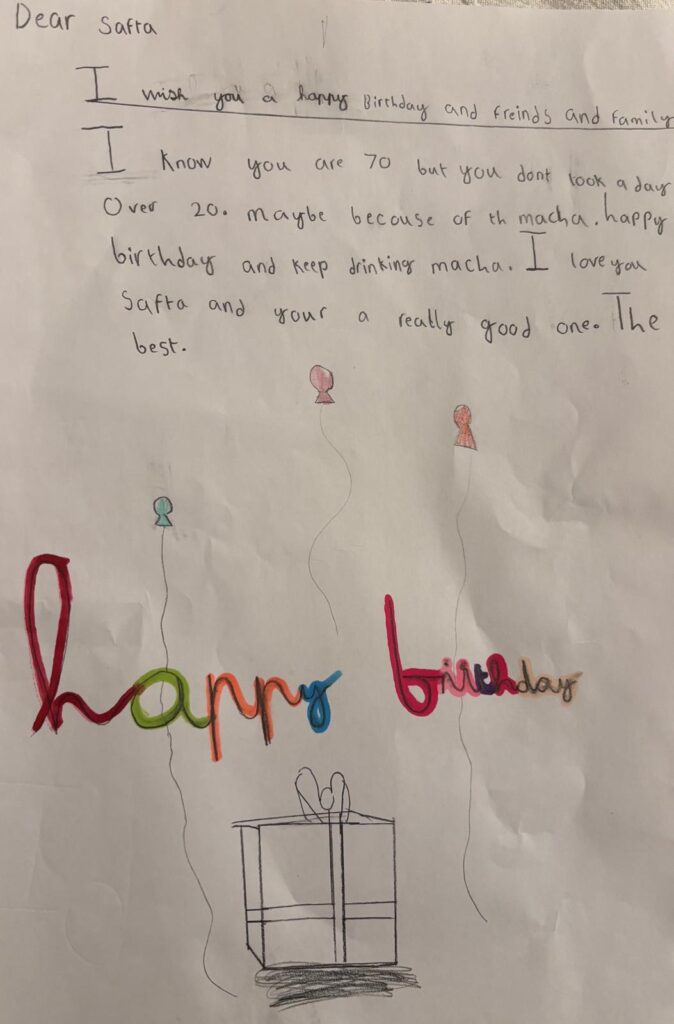 Dear Safta
I wish you a happy Birthday and freinds and family
I know you are 70 but you dont look a day
Over 20. maybe becouse of th macha. happy
birthday and keep drinking macha. I love you
Safta and your a really good one. The
best.
happy birthday